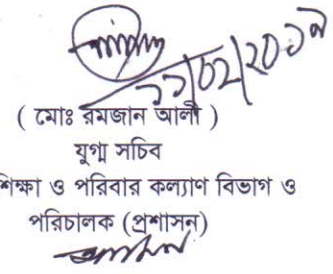 ১১/০২/২০১৯
( মোঃ রমজান আলী )
যুগ্ম সচিব
শিক্ষা ও পরিবার কল্যাণ বিভাগ ও
পরিচালক (প্রশাসন)